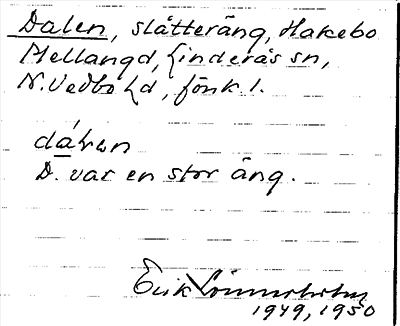 Dalen, slåtteräng, Hakebo
Mellangd, Linderås sn,
N. Vedbo hd, Jönk l.
D. var en stor äng.
Erik
1949, 1950